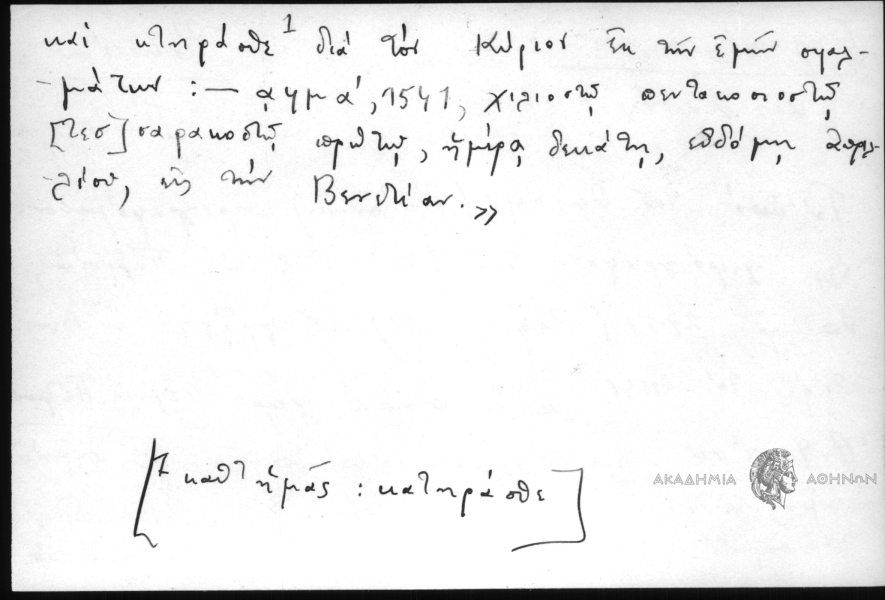 καὶ κτηράσθε¹ διὰ τὸν Κύριον ἐκ τῶν ἐμῶν σφαλ-
-μάτων : — αφμα΄, 1541, χιλιοστῷ πεντακοσιοστῷ
[τεσ]σαρακοστῷ πρώτῳ, ἡμέρᾳ δεκάτῃ, ἑβδόμῃ Ἀπριλ-
-λίου, εἰς τὴν Βενετίαν. »
[1 καθ' ἡμᾶς : κατηράσθε]
ΑΚΑΔΗΜΙΑ ΑΘΗΝΩΝ